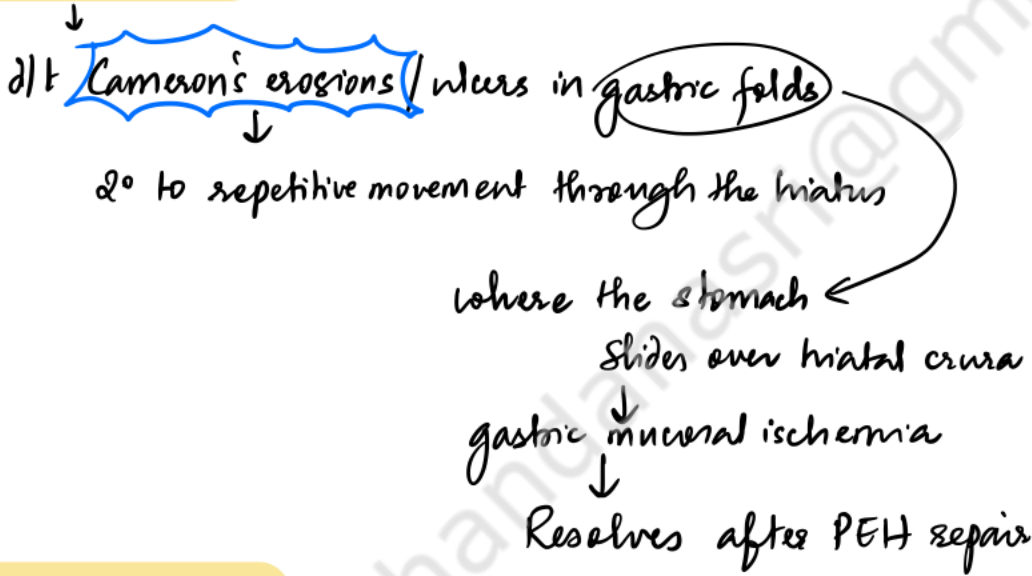 ↓
d/t Cameron's erosions / ulcers in gastric folds
↓
2° to repetitive movement through the hiatus
where the stomach
slides over hiatal crura
↓
gastric mucosal ischemia
↓
Resolves after PEH repair
handanasri@gm